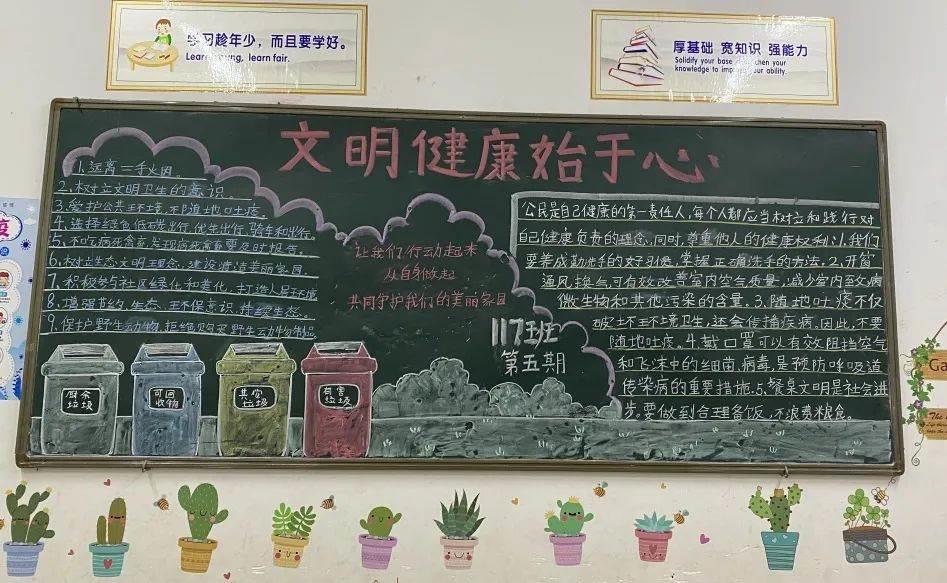 学习趁年少，而且要学好。
Learn young, learn fair.
厚基础 宽知识 强能力
Solidify your base
knowledge to improve your ability.
文明健康始于心
1.远离二手火因。
2.树立文明卫生的意识。
3.爱护公共环境,不随地吐痰。
4.选择绿色低碳出行,优先步行、骑车和出行。
5.不吃病死禽畜,发现病死禽畜要及时报告。
6.树立生态文明理念,建设清洁美丽家园。
7.积极参与社区绿化和老化,打造人居环境
8.增强节约、生态、环保意识,持续生态。
9.保护野生动物,拒绝购买野生动物制品。
让我们行动起来
从自身做起
共同争护我们的美丽家园
117班
第五期
公民是自己健康的第一责任人,每个人都应当树立和践行对
自己健康负责的理念,同时,尊重他人的健康权利:1.我们
要养成勤洗手的好习惯,掌握正确洗手的方法.2.开窗
通风换气,可有效改善室内空气质量,减少室内至致病
微生物和其他污染的含量。3.随地吐痰不仅
破坏环境卫生,还会传播疾病,因此,不要
随地吐痰。4.戴口罩可以有效阻挡空气
和飞沫中的细菌、病毒,是预防呼吸道
传染病的重要措施.5.餐桌文明是社会进
步。要做到合理备饭,不浪费粮食。
厨余
垃圾
可回
收物
其它
垃圾
有害
垃圾
疫
Ga